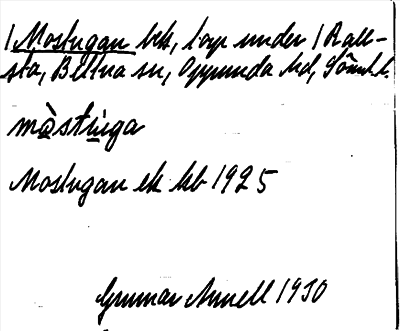 1 Mostugan bek, lag under 1 Rall-
sta, Bettna sn, Oppunda hd, Södml.
mòstuga
Mostugan ek kb 1925
Gunnar Annell 1930